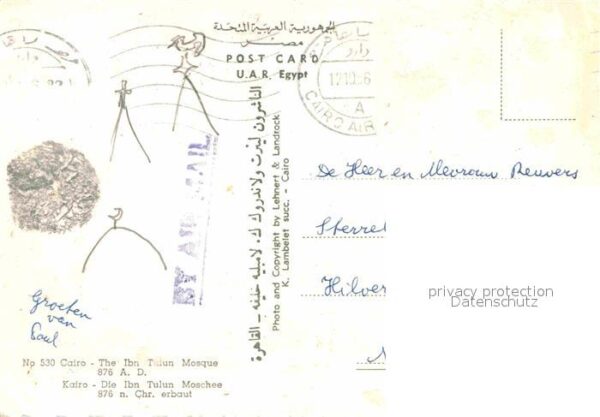 الجمهورية العربية المتحدة
مصر
POST CARD
U.A.R. Egypt
CAIRO AIR
A
BY AIR MAIL
الناشرون لينرت ولاندروك ك. لامبليه خليفه - القاهرة
Photo and Copyright by Lehnert & Landrock
K. Lambelet succ. - Cairo
De Heer en Mevrouw Reuvers
Sterre
Hilver
privacy protection
Datenschutz
Groeten
van
Paul
No 530 Cairo - The Ibn Tulun Mosque
876 A. D.
Kairo - Die Ibn Tulun Moschee
876 n. Chr. erbaut